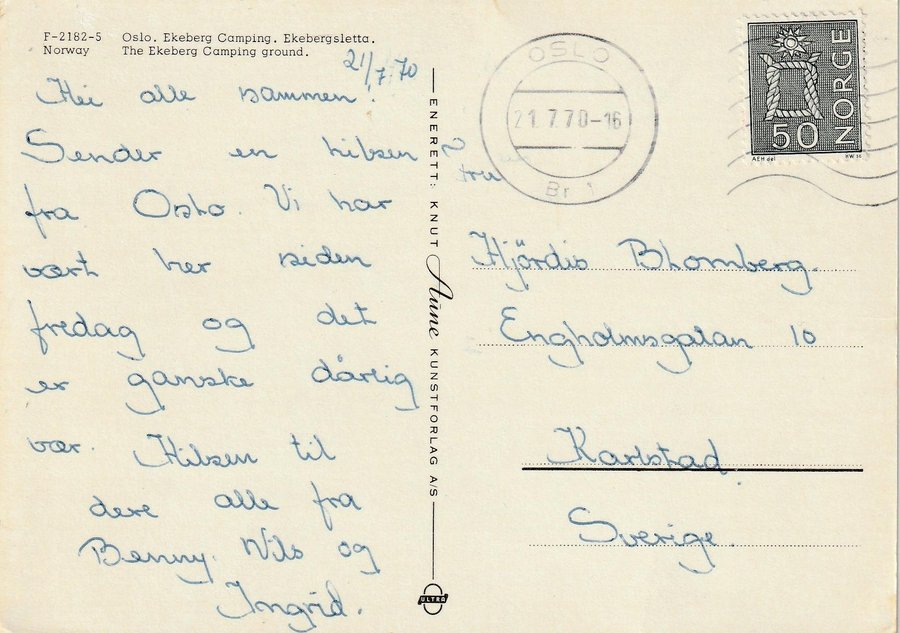 F-2182-5 Oslo. Ekeberg Camping. Ekebergsletta.
Norway The Ekeberg Camping ground.
21/7-70
Hei alle sammen!
Sender en hilsen
fra Oslo. Vi har
vært her siden
fredag og det
er ganske dårlig
vær. Hilsen til
dere alle fra
Benny. Nils og
Ingrid.
ENERETT: KNUT Aune KUNSTFORLAG A/S
ULTRA
OSLO
21. 7.70-16
Br 1
NORGE
50
AEH del
fru
Hjördis Blomberg.
Engholmsgatan 10
Karlstad.
Sverige.